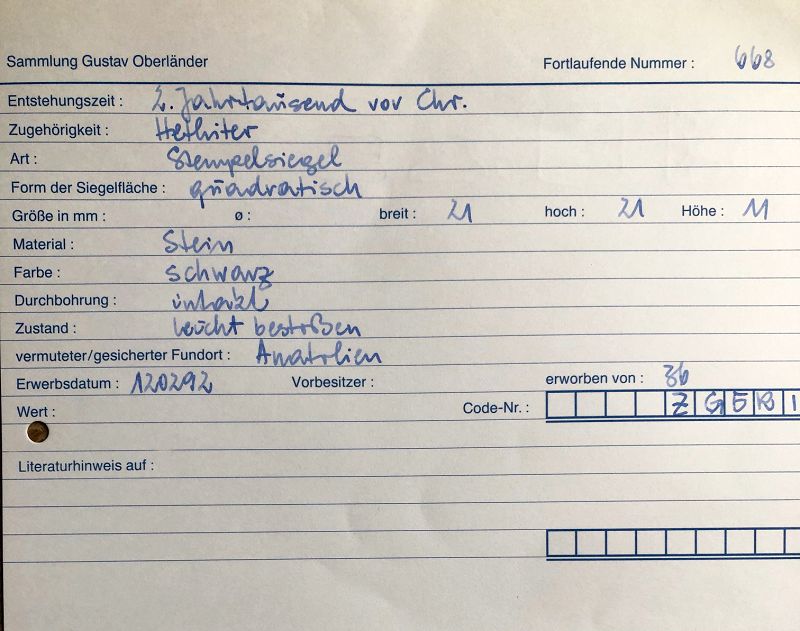 Sammlung Gustav Oberländer Fortlaufende Nummer : 668
Entstehungszeit : 2. Jahrtausend vor Chr.
Zugehörigkeit : Hethiter
Art : Stempelsiegel
Form der Siegelfläche : quadratisch
Größe in mm : ø : breit : 21 hoch : 21 Höhe : 11
Material : Stein
Farbe : schwarz
Durchbohrung : intakt
Zustand : leicht bestoßen
vermuteter/gesicherter Fundort : Anatolien
Erwerbsdatum : 120292 Vorbesitzer : erworben von : 36
Wert : Code-Nr. : ZGERI
Literaturhinweis auf :